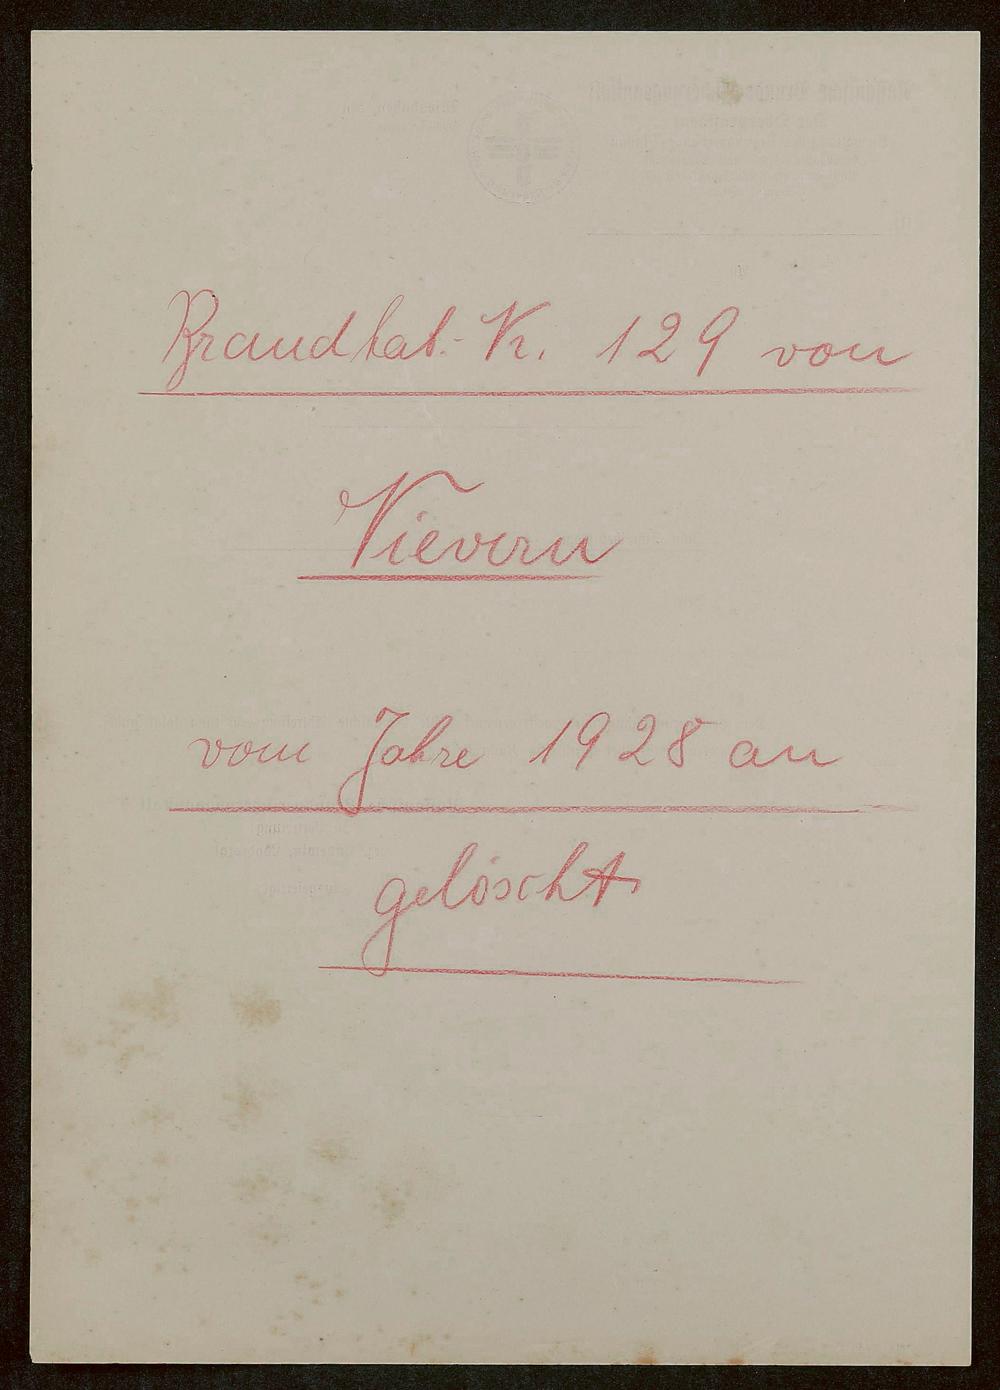 Brandkat.-Nr. 129 von
Nievern
vom Jahre 1928 an
gelöscht